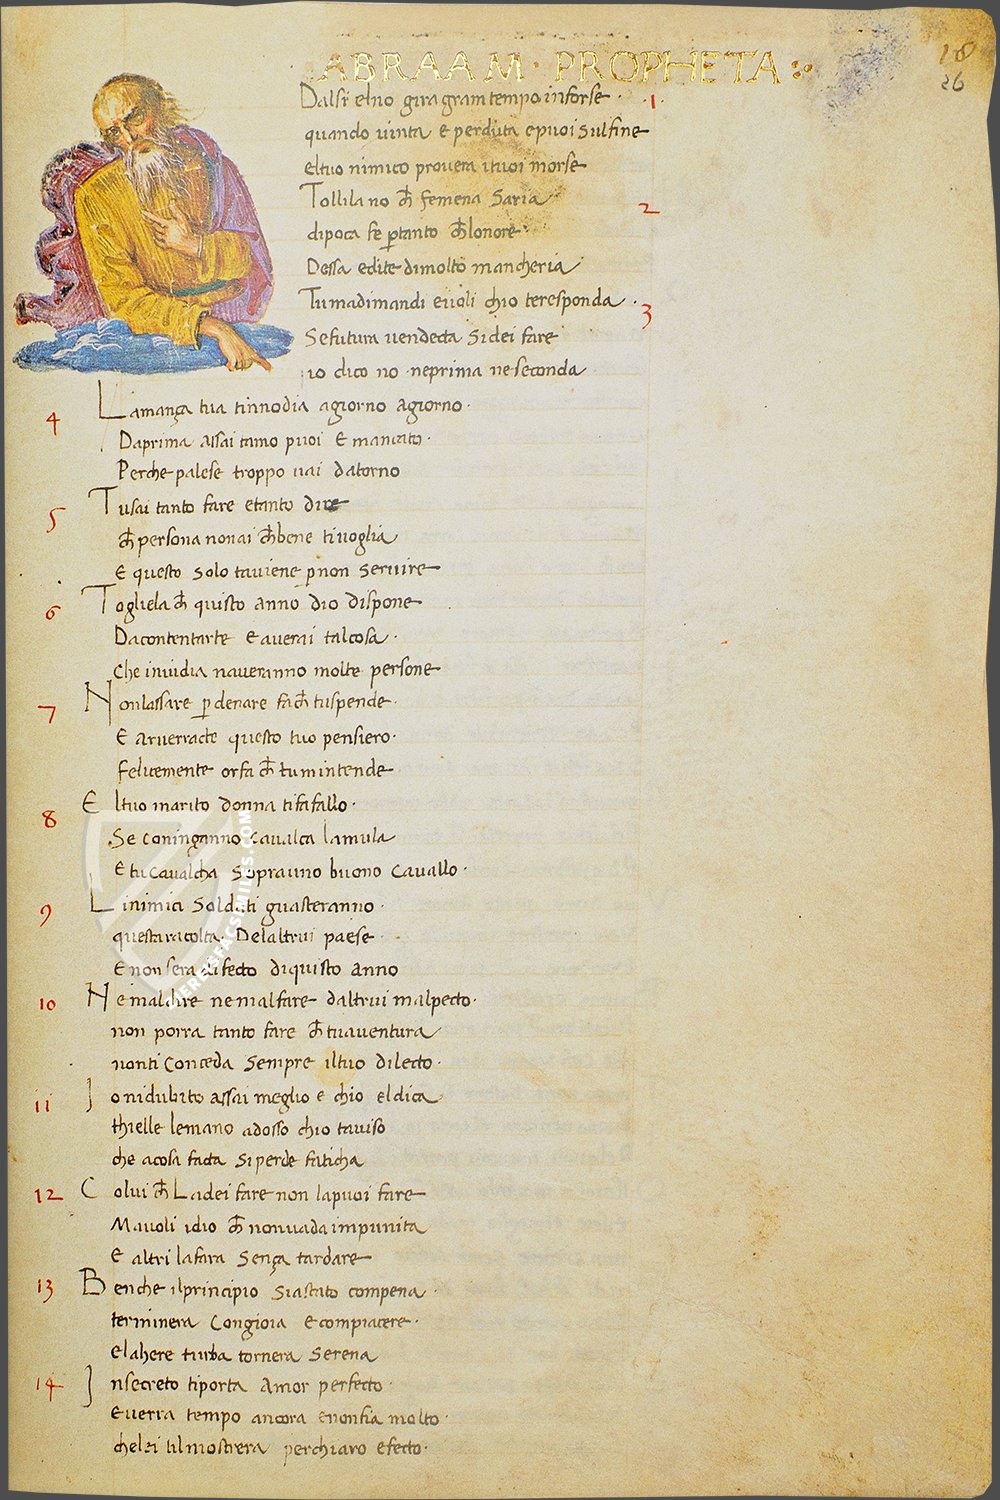 ABRAAM · PROPHETA
18
26
Dalsi elno gira gram tempo inforse · 1
quando uinta e perduta epuoi sulfine
eltuo nimico prouera ituoi morse
Tollila no ch femena Saria 2
dipoca fe ptanto chlonore
Dessa edite dimolto mancheria
Tumadimandi euoli chio teresponda · 3
Sefutura uendecta Sidei fare
io dico no neprima ne seconda
4 Lamança tua tinnodia agiorno agiorno
Daprima assai tamo puoi E mancato ·
Perche palese troppo uai datorno
5 Tusai tanto fare etanto dire
ch persona nonai chbene tiuoglia
E questo solo tauiene pnon seruire
6 Togliela ch quisto anno dio dispone
Dacontentarte eauerai talcosa ·
Che inuidia naueranno molte persone
7 Nonlassare p denare fach tuspende
E aruerracte questo tuo pensiero ·
felicemente orfa ch tumintende
8 Eltuo marito donna tifafallo ·
Se coninganno Caualca lamula
E tu Caualcha Soprauno buono Cauallo ·
9 Linimici Soldati guasteranno ·
questaracolta · Delaltrui paese
E nonsera difecto diquisto anno
10 Nemaldire nemalfare daltrui malpecto ·
non porra tanto fare ch tuauentura
nonti Conceda Sempre iltuo dilecto ·
11 Ionidubito assai meglio e chio eldica
thielle lemano adosso chio tauiso
che acosa facta Siperde faticha
12 Colui ch Ladei fare non lapuoi fare
Mauoli idio ch nonuada impunita
E altri lafara Sença tardare
13 Benche ilprincipio Siastato compena
terminera Congioia ecompiacere ·
elahere turba tornera Serena
14 Insecreto tiporta Amor perfecto ·
Euerra tempo ancora enonfia molto
chelsi tilmostrera perchiaro efecto ·